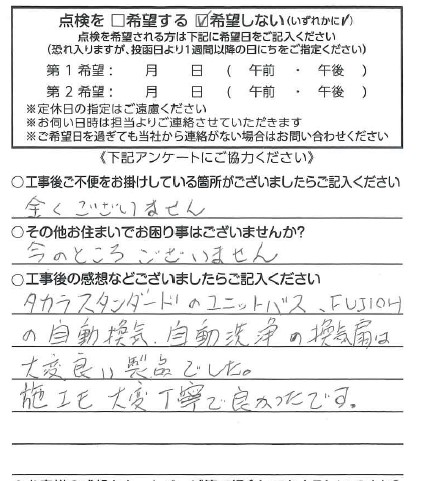 点検を □希望する ☑希望しない(いずれかに✓)
点検を希望される方は下記に希望日をご記入ください
(恐れ入りますが、投函日より1週間以降の日にちをご指定ください)
第1希望: 月 日 ( 午前 ・ 午後 )
第2希望: 月 日 ( 午前 ・ 午後 )
※定休日の指定はご遠慮ください
※お伺い日時は担当よりご連絡させていただきます
※ご希望日を過ぎても当社から連絡がない場合はお問い合わせください
《下記アンケートにご協力ください》
○工事後ご不便をお掛けしている箇所がございましたらご記入ください
全くございません
○その他お住まいでお困り事はございませんか?
今のところございません
○工事後の感想などございましたらご記入ください
タカラスタンダードのユニットバス、FUJIOH
の自動換気、自動洗浄の換気扇は
大変良い製品でした。
施工も大変丁寧で良かったです。